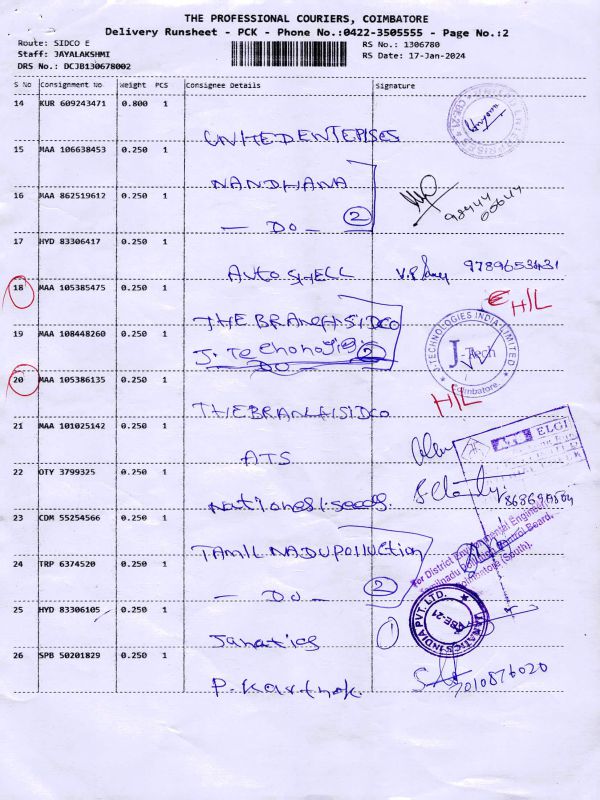 THE PROFESSIONAL COURIERS, COIMBATORE
Delivery Runsheet - PCK - Phone No.:0422-3505555 - Page No.:2
Route: SIDCO E
RS No.: 1306780
Staff: JAYALAKSHMI
RS Date: 17-Jan-2024
DRS No.: DCJB130678002
S No Consignment No Weight PCS Consignee Details Signature
14 KUR 609243471 0.800 1
15 MAA 106638453 0.250 1
NANDHANA
16 MAA 862519612 0.250 1
- DO - 2
98444
00644
17 HYD 83306417 0.250 1
AUTO SHELL
9789653431
18 MAA 105385475 0.250 1
H/L
THE BRANCH SIDCO
19 MAA 108448260 0.250 1
2
DO
J-TECHNOLOGIES INDIA LIMITED
J-Tech
Coimbatore.
20 MAA 105386135 0.250 1
H/L
THE BRANCH SIDCO
21 MAA 101025142 0.250 1
ATS
ELGI
22 OTY 3799325 0.250 1
Nationes/.seeds.
23 CDM 55254566 0.250 1
TAMIL NADU Polluction
For District Environmental Engineer
Tamilnadu Pollution Control Board,
Coimbatore (South).
24 TRP 6374520 0.250 1
- DO - 2
25 HYD 83306105 0.250 1
Janatics
1
JANATICS INDIA PVT. LTD.
CBE-21
26 SPB 50201829 0.250 1
P. Karthik.
7010876020